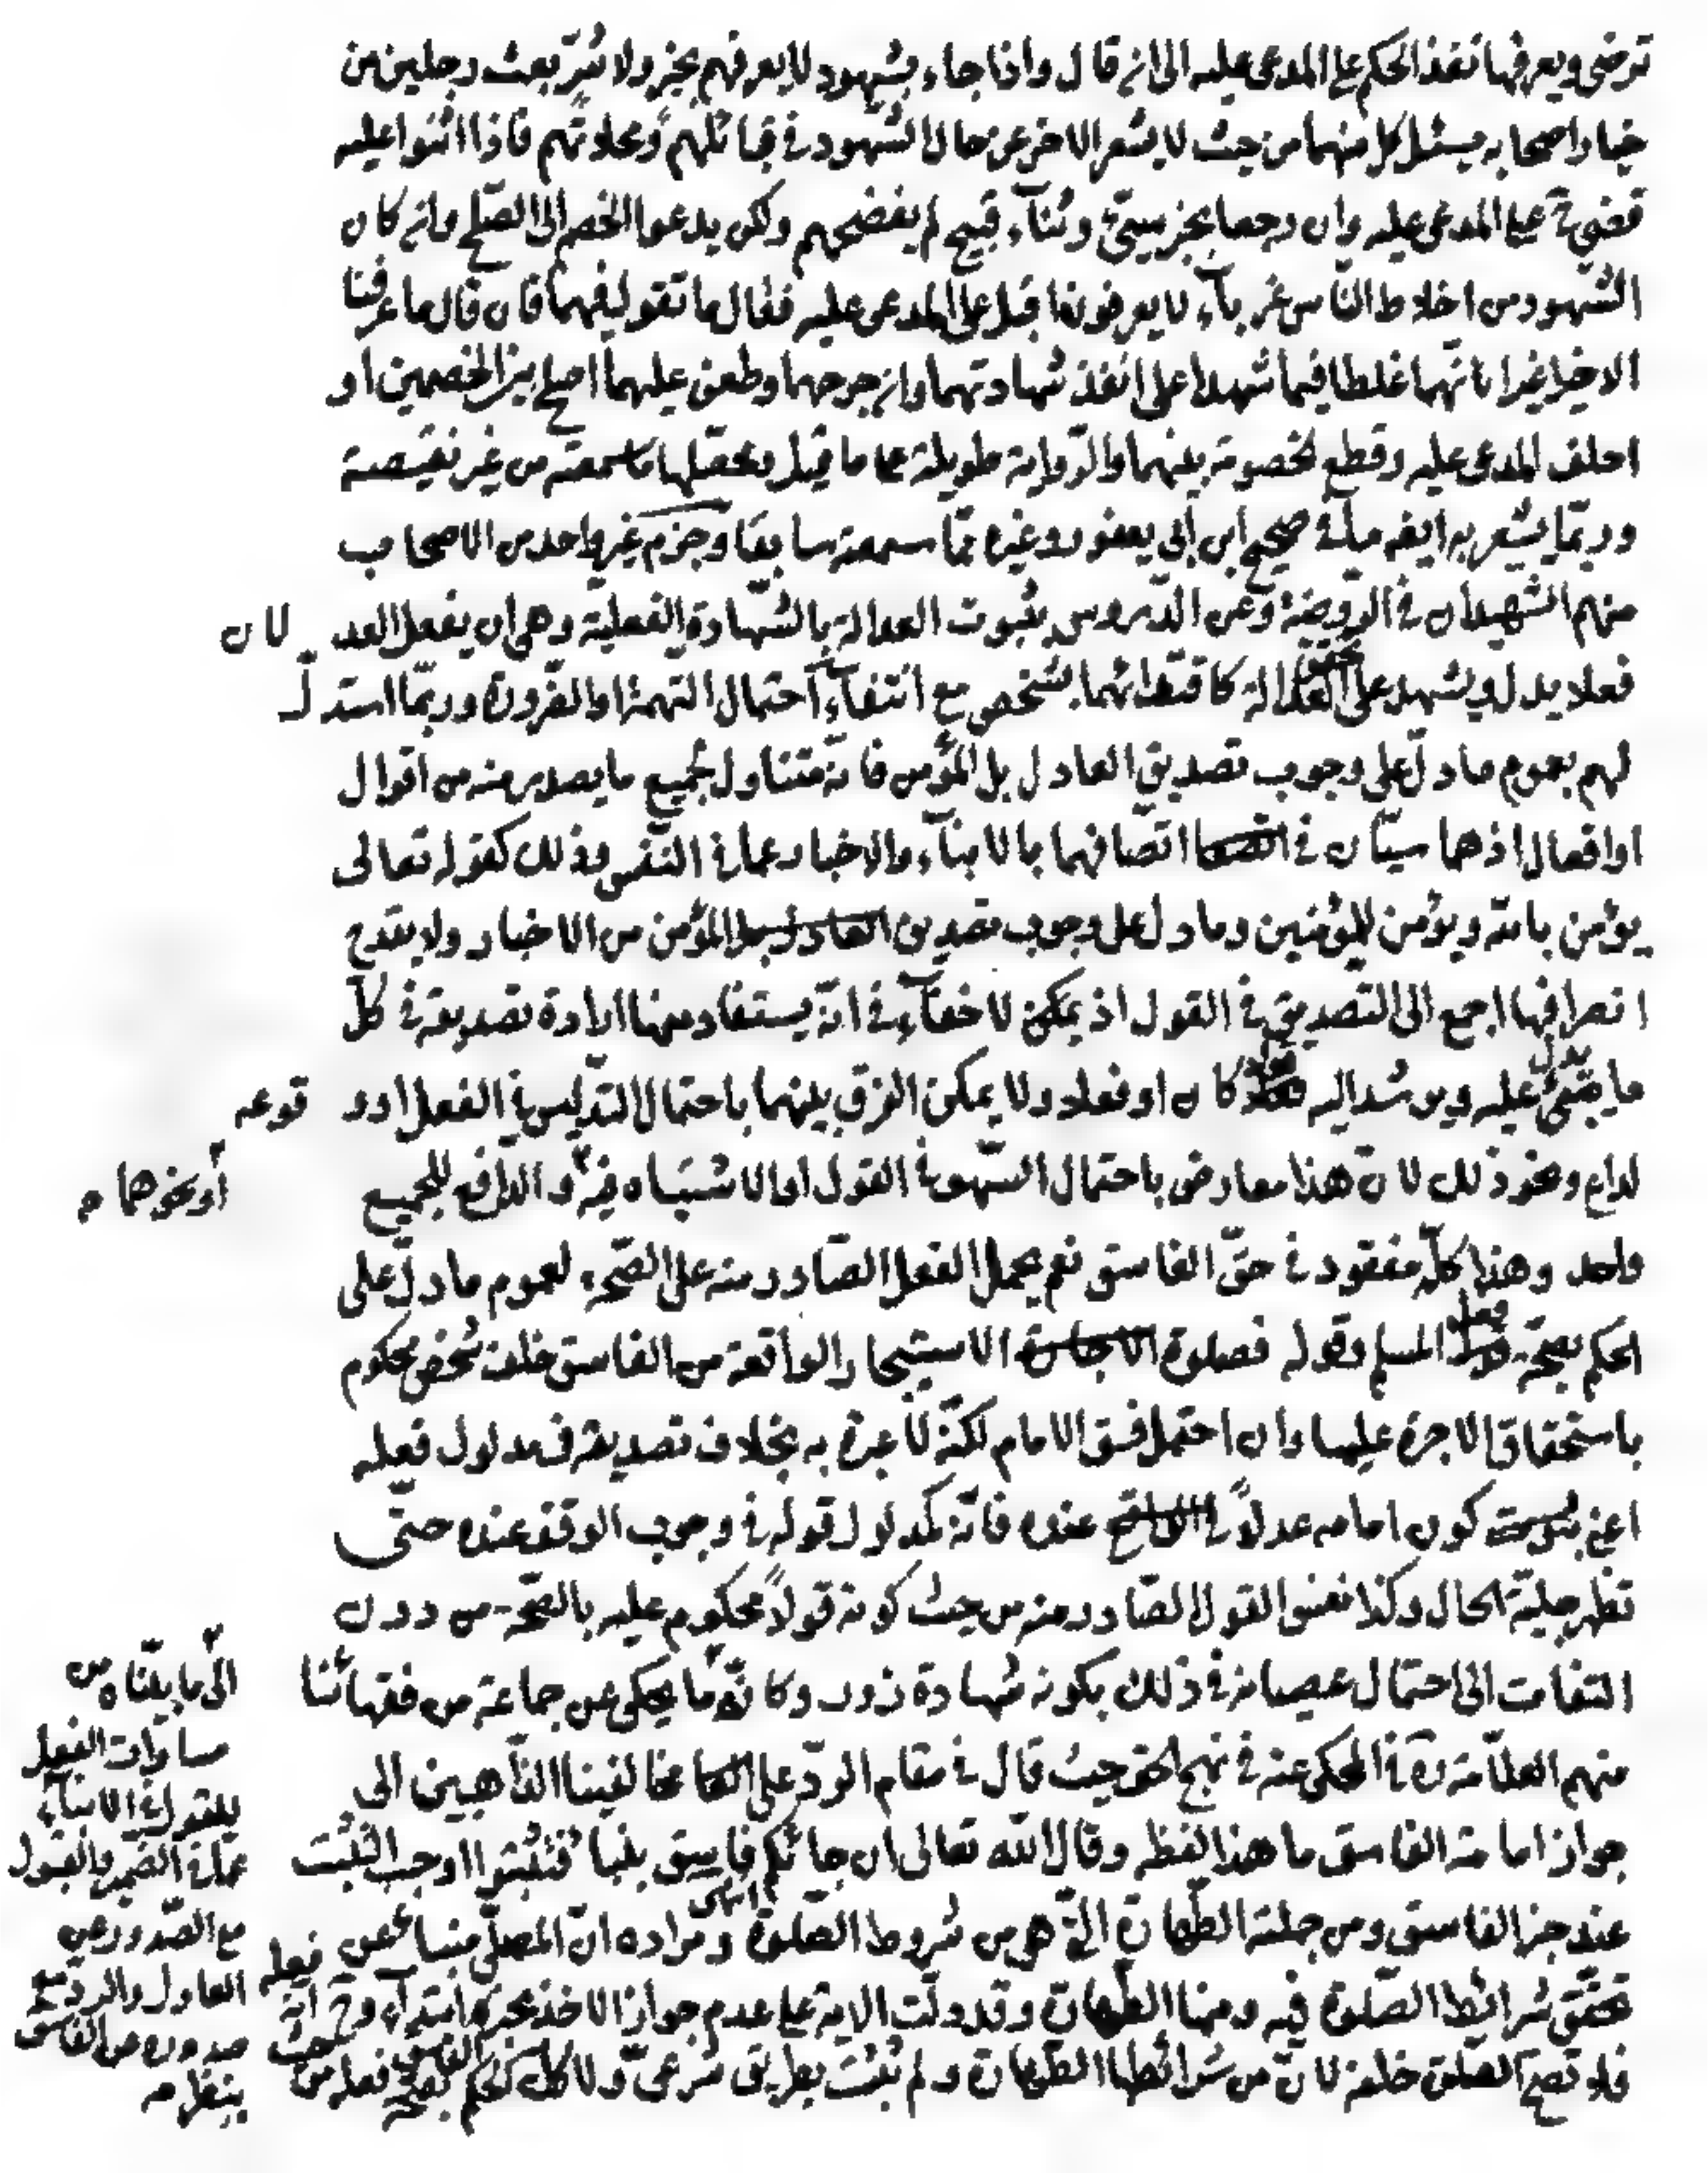 ترضى ويعرفها نفذ الحكم على المدعى عليه الى ان قال واذا جاء بشهود لا يعرفهم بخير ولا شرّ بعث رجلين من
خيار اصحابه يسئل كل منهما من حيث لا يشعر الاخر عن حال الشهود في قبائلهم ومحلاتهم فاذا اثنوا عليه
قضى ح على المدعى عليه وان رجعا بخبر سيّئ وثناء قبيح لم يفضحهم ولكن يدعوا الخصم الى الصلح وان كان
الشهود من اخلاط الناس غرباء لا يعرفون اقبل على المدعى عليه فقال ما تقول فيهما فان قال ما عرفنا
الا خيرا غير انهما غلطا فيما شهدا على انفذ شهادتهما وان جرحهما وطعن عليهما اصلح بين الخصمين او
احلف المدعى عليه وقطع الخصومة بينهما والرواية طويلة على ما قيل ومحصّلها ما سمعته من غير نقيصة
وربّما يشعر به ايضه صحيح ابن ابي يعفور وغيره ممّا سمعته سابقا وجزم غير واحد من الاصحاب
منهم الشهيدان في الروضة وعن الدروس بثبوت العدالة بالشهادة الفعلية وهى ان يفعل العدلان
فعلا يدل ويشهد على تحقق العدالة كاقتدائهما بشخص مع انتفاء احتمال التهمة او الضرورة وربّما استدلّ
لهم بعموم ما دلّ على وجوب تصديق العادل بل المؤمن فانه متناول لجميع ما يصدر منه من اقوال
او افعال اذ هما سيّان في اتّصافهما بالانباء والاخبار عما في النفس وذلك كقوله تعالى
يؤمن بالله ويؤمن للمؤمنين وما دل على وجوب تصديق المؤمن من الاخبار ولا يقدح
انصرافها اجمع الى التصديق في القول اذ يمكن لا خفاء في انّه يستفاد منها ارادة تصديقه في كلّ
ما يدل عليه ويرشد اليه قولا كان او فعلا ولا يمكن الفرق بينهما باحتمال التدليس في الفعل او وقوعه
لداع ونحو ذلك لان هذا معارض باحتمال السهو في القول او الاشتباه فيه أو نحوهما م والدافع للجميع
واحد وهذا كلّه مفقود في حقّ الفاسق نعم يحمل الفعل الصادر منه على الصحّة لعموم ما دلّ على
الحكم بصحّة فعل المسلم وقوله فصلوة الاستيجار الواقعة من الفاسق خلف شخص محكوم
باستحقاق الاجرة عليها وان احتمل فسق الامام لكنّه لا عبرة به بخلاف تصديقه في مدلول فعله
اعني كون امامه عدلاً عنده فانّه كمدلول قوله في وجوب الوقف عنده حتّى
تظهر جليّة الحال وكذا نفس القول الصادر منه من حيث كونه قولاً محكوم عليه بالصحّة من دون
التفات الى احتمال عصيانه في ذلك بكونه شهادة زور وكانّ ما يحكى عن جماعة من فقهائنا
منهم العلاّمة ره في المحكى عنه في نهج الحق حيث قال في مقام الردّ على مخالفينا الذاهبين الى
جواز امامة الفاسق ما هذا لفظه وقال الله تعالى ان جائكم فاسق بنبا فتثبتوا اوجب التثبت
عند خبر الفاسق ومن جملته الطهارة التي هي من شروط الصلوة انتهى ومراده انّ المصلّى منبا عن فعله
تحقق شرائط الصلوة فيه ومنها الطهارة وقد دلّت الاية على عدم جواز الاخذ بخبره ابتداء وح انّه
فلا تصح الصلوة خلفه لان من شرائطها الطهارة ولم تثبت بطريق شرعىّ ولا كلّ الحكم بصحة فعله من
الى ما بيّناه من
مساوات الفعل
للقول في الانباء
عما في الضمير والقبول
مع الصدور عن
العادل والرد مع
صدوره من الفاسق
ينظر م